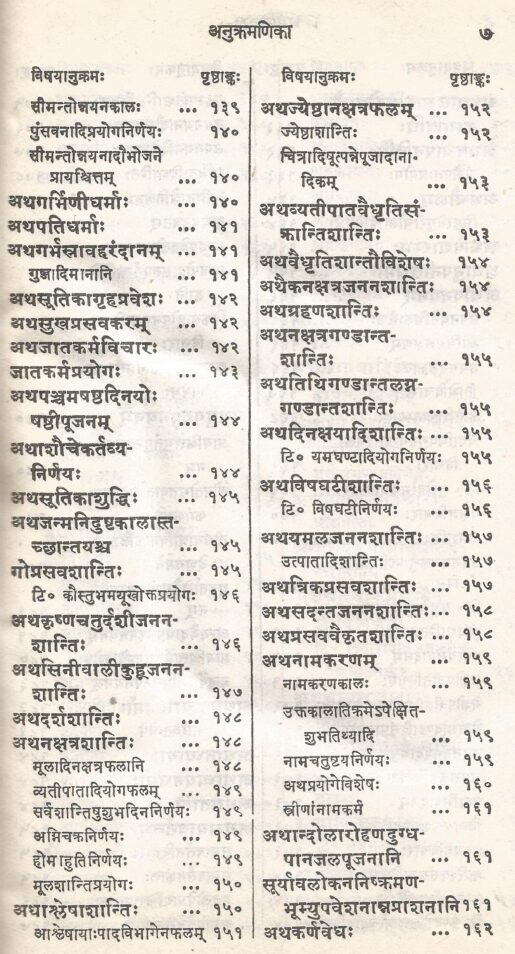 अनुक्रमणिका ७
विषयानुक्रमः पृष्ठाङ्कः
सीमन्तोन्नयनकालः ... १३९
पुंसवनादिप्रयोगनिर्णयः १४०
सीमन्तोन्नयनादौभोजने
प्रायश्चित्तम् ... १४०
अथगर्भिणीधर्माः ... १४०
अथपतिधर्माः ... १४१
अथगर्भस्रावहरंदानम् ... १४१
गुञ्जादिमानानि ... १४१
अथसूतिकागृहप्रवेशः ... १४२
अथसुखप्रसवकरम् ... १४२
अथजातकर्मविचारः ... १४२
जातकर्मप्रयोगः ... १४३
अथपञ्चमषष्ठदिनयोः
षष्ठीपूजनम् ... १४४
अथाशौचेकर्तव्य-
निर्णयः ... १४४
अथसूतिकाशुद्धिः ... १४५
अथजन्मनिदुष्टकालास्त-
च्छान्तयश्च ... १४५
गोप्रसवशान्तिः ... १४५
टि० कौस्तुभमयूखोक्तप्रयोगः १४६
अथकृष्णचतुर्दशीजनन-
शान्तिः ... १४६
अथसिनीवालीकुहूजनन-
शान्तिः ... १४७
अथदर्शशान्तिः ... १४८
अथनक्षत्रशान्तिः ... १४८
मूलादिनक्षत्रफलानि ... १४८
व्यतीपातादियोगफलम् ... १४९
सर्वशान्तिषुशुभदिननिर्णयः १४९
अग्निचक्रनिर्णयः ... १४९
होमाहुतिनिर्णयः ... १४९
मूलशान्तिप्रयोगः ... १५०
अथाश्लेषाशान्तिः ... १५०
आश्लेषायाःपादविभागेनफलम् १५१
विषयानुक्रमः पृष्ठाङ्कः
अथज्येष्ठानक्षत्रफलम् ... १५२
ज्येष्ठाशान्तिः ... १५२
चित्रादिषूत्पन्नेपूजादाना-
दिकम् ... १५३
अथव्यतीपातवैधृतिसं-
क्रान्तिशान्तिः ... १५३
अथवैधृतिशान्तौविशेषः १५४
अथैकनक्षत्रजननशान्तिः १५४
अथग्रहणशान्तिः ... १५४
अथनक्षत्रगण्डान्त-
शान्तिः ... १५५
अथतिथिगण्डान्तलग्न-
गण्डान्तशान्तिः ... १५५
अथदिनक्षयादिशान्तिः ... १५५
टि० यमघण्टादियोगनिर्णयः १५५
अथविषघटीशान्तिः ... १५६
टि० विषघटीनिर्णयः ... १५६
अथयमलजननशान्तिः ... १५७
उत्पातादिशान्तिः ... १५७
अथत्रिकप्रसवशान्तिः ... १५७
अथसदन्तजननशान्तिः ... १५८
अथप्रसववैकृतशान्तिः ... १५८
अथनामकरणम् ... १५९
नामकरणकालः ... १५९
उक्तकालातिक्रमेऽपेक्षित-
शुभतिथ्यादि ... १५९
नामचतुष्टयनिर्णयः ... १५९
अथप्रयोगेविशेषः ... १६०
स्त्रीणांनामकर्म ... १६१
अथान्दोलारोहणदुग्ध-
पानजलपूजनानि ... १६१
सूर्यावलोकननिष्क्रमण-
भूम्युपवेशनान्नप्राशनानि १६१
अथकर्णवेधः ... १६२